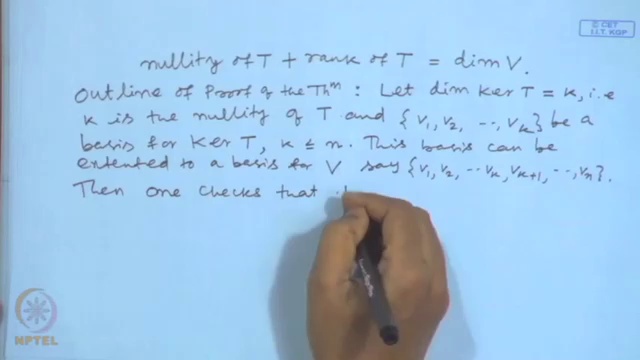 © CET
I.I.T. KGP
nullity of T + rank of T = dim V.
Outline of Proof of the Thᵐ : Let dim Ker T = k, i.e
k is the nullity of T and {v₁, v₂, ..., vₖ} be a
basis for Ker T, k ≤ n. This basis can be
extented to a basis for V say {v₁, v₂, ... vₖ, vₖ₊₁, ..., vₙ}.
Then one checks that
NPTEL